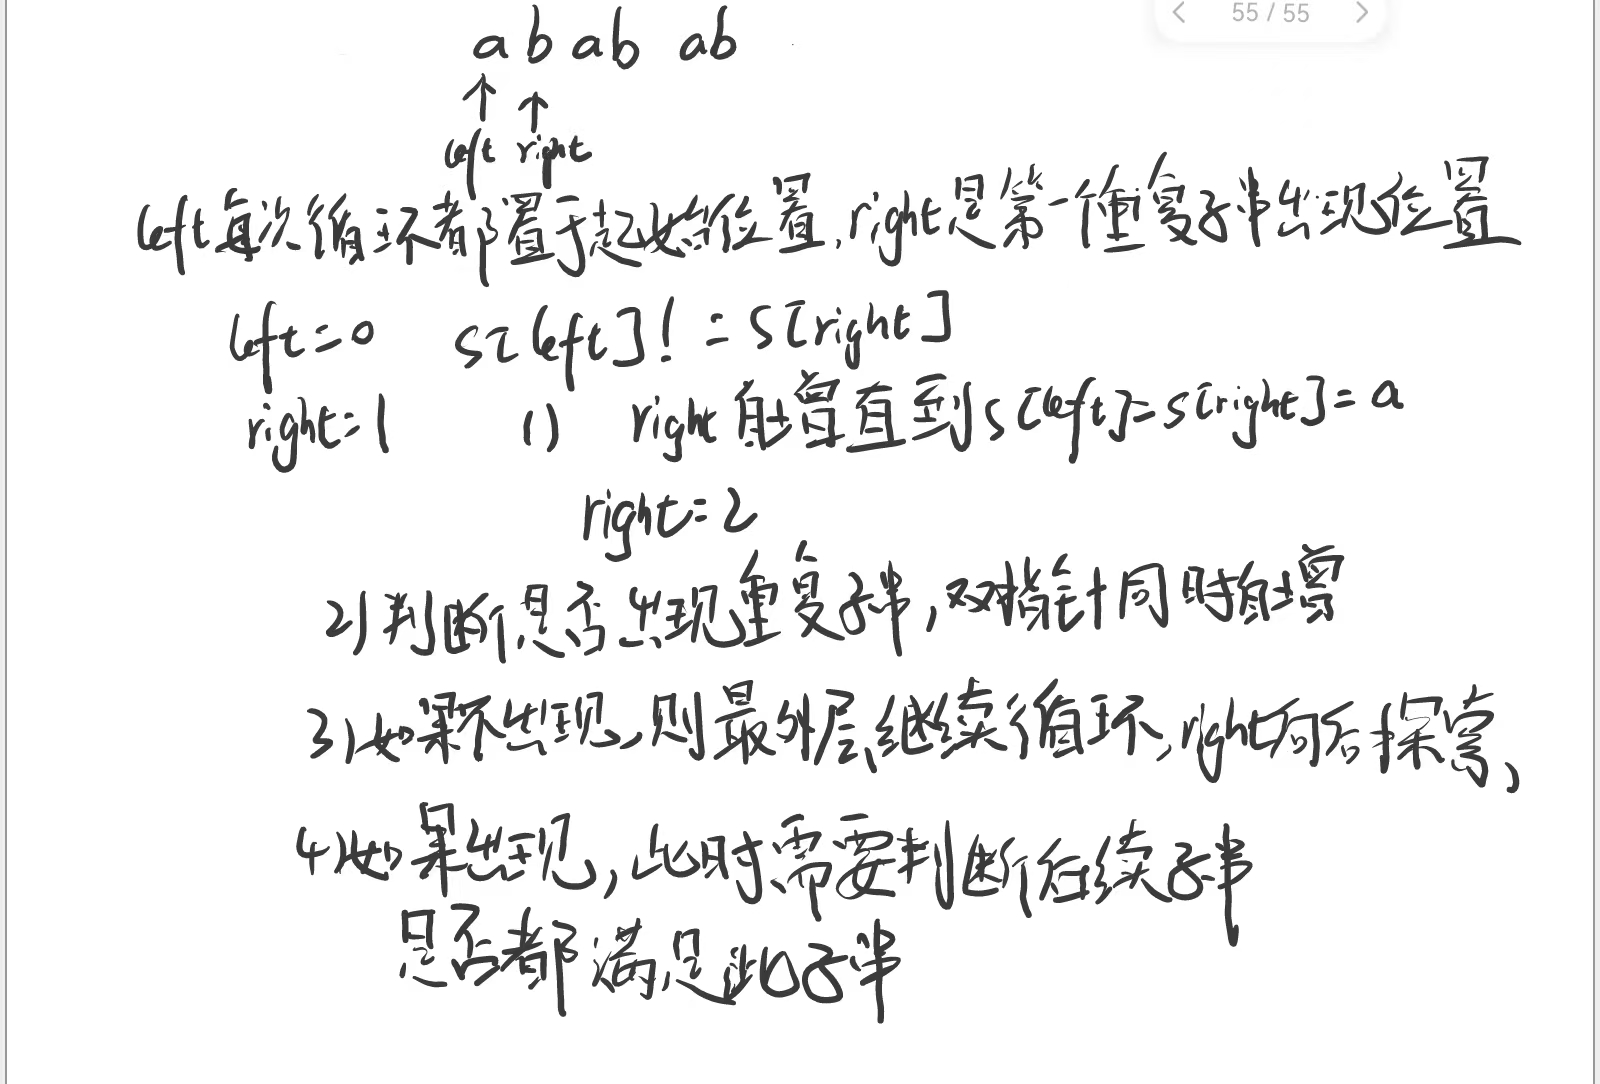 55 / 55
a b a b a b
left right
left每次循环都置于起始位置,right是第一个重复子串出现位置
left=0 s[left]!=s[right]
right=1 1) right自增直到s[left]=s[right]=a
right=2
2)判断是否出现重复子串,双指针同时自增
3)如果不出现,则最外层继续循环,right向后探索、
4)如果出现,此时需要判断后续子串
是否都满足此子串